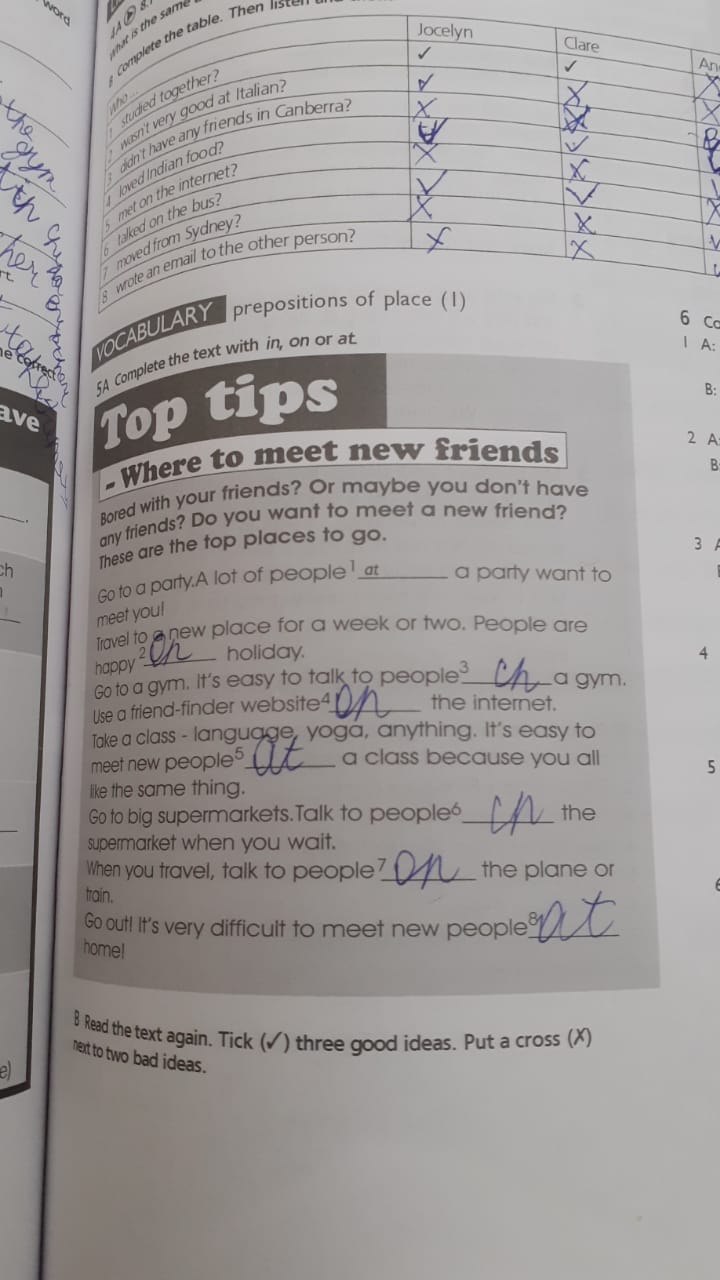 word
4A 8.
What is the same
B Complete the table. Then listen
Jocelyn Clare An
Who ... ✓ ✓
1 studied together? ✓ X X
2 wasn't very good at Italian? X X
3 didn't have any friends in Canberra?
4 loved Indian food? X ✓
5 met on the internet? X
6 talked on the bus? ✓ ✓ X
7 moved from Sydney? X X
8 wrote an email to the other person? X X
the
gym
VOCABULARY prepositions of place (1)
5A Complete the text with in, on or at.
Top tips
- Where to meet new friends
Bored with your friends? Or maybe you don't have
any friends? Do you want to meet a new friend?
These are the top places to go.
Go to a party. A lot of people 1 at a party want to
meet you!
Travel to a new place for a week or two. People are
happy 2 on holiday.
Go to a gym. It's easy to talk to people 3 in a gym.
Use a friend-finder website 4 on the internet.
Take a class - language, yoga, anything. It's easy to
meet new people 5 at a class because you all
like the same thing.
Go to big supermarkets. Talk to people 6 in the
supermarket when you wait.
When you travel, talk to people 7 on the plane or
train.
Go out! It's very difficult to meet new people 8 at
home!
B Read the text again. Tick (✓) three good ideas. Put a cross (X)
next to two bad ideas.
e correct
ave
ch
e)
6 Co
1 A:
B:
2 A:
B:
3 A
4
5
6